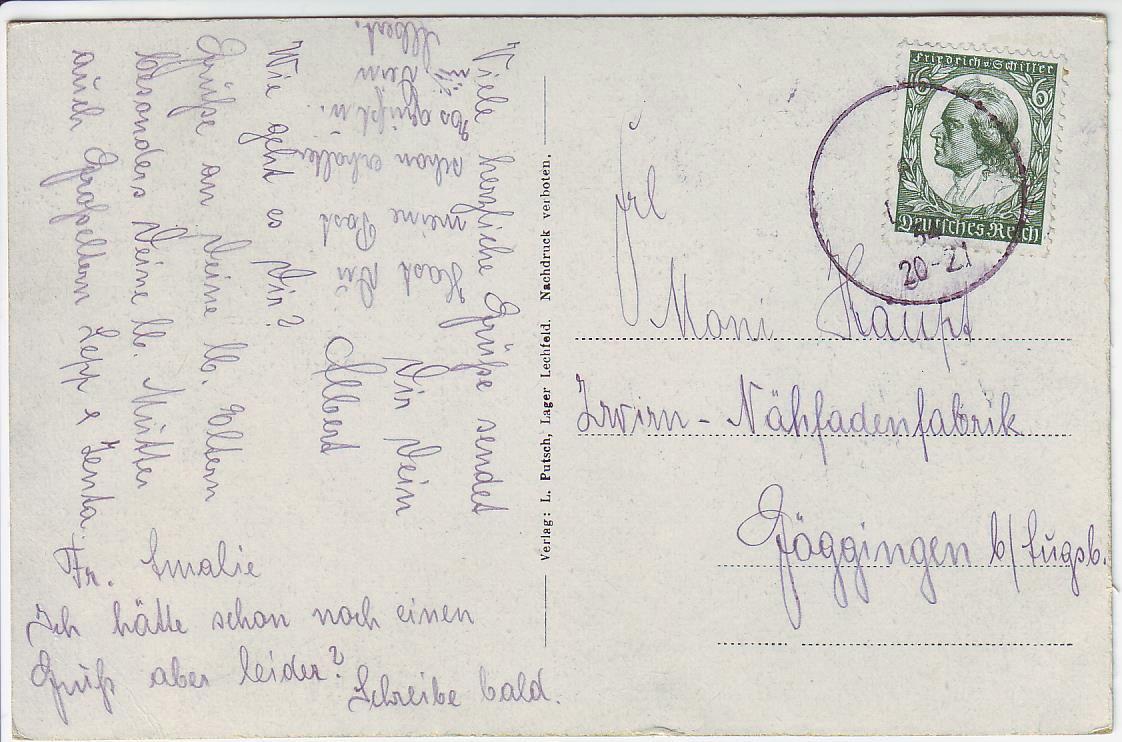 Viele herzliche Grüße sendet
Dir Dein
Albert
Wie geht es Dir?
Grüße an Deine lb. Eltern
besonders Deine lb. Mutter
auch Großeltern Sepp & Zenta.
Fr. Amalie
Ich hätte schon noch einen
Gruß aber leider?
Schreibe bald.
Hast Du
meine Post
schon erhalten
grüßt u.
Dein
Albert.
Verlag: L. Putsch, Lager Lechfeld. Nachdruck verboten.
Friedrich v. Schiller
6 6
Deutsches Reich
34
20-21
Frl
Moni Haupt
Zwirn-Nähfadenfabrik
Göggingen b/Augsb.